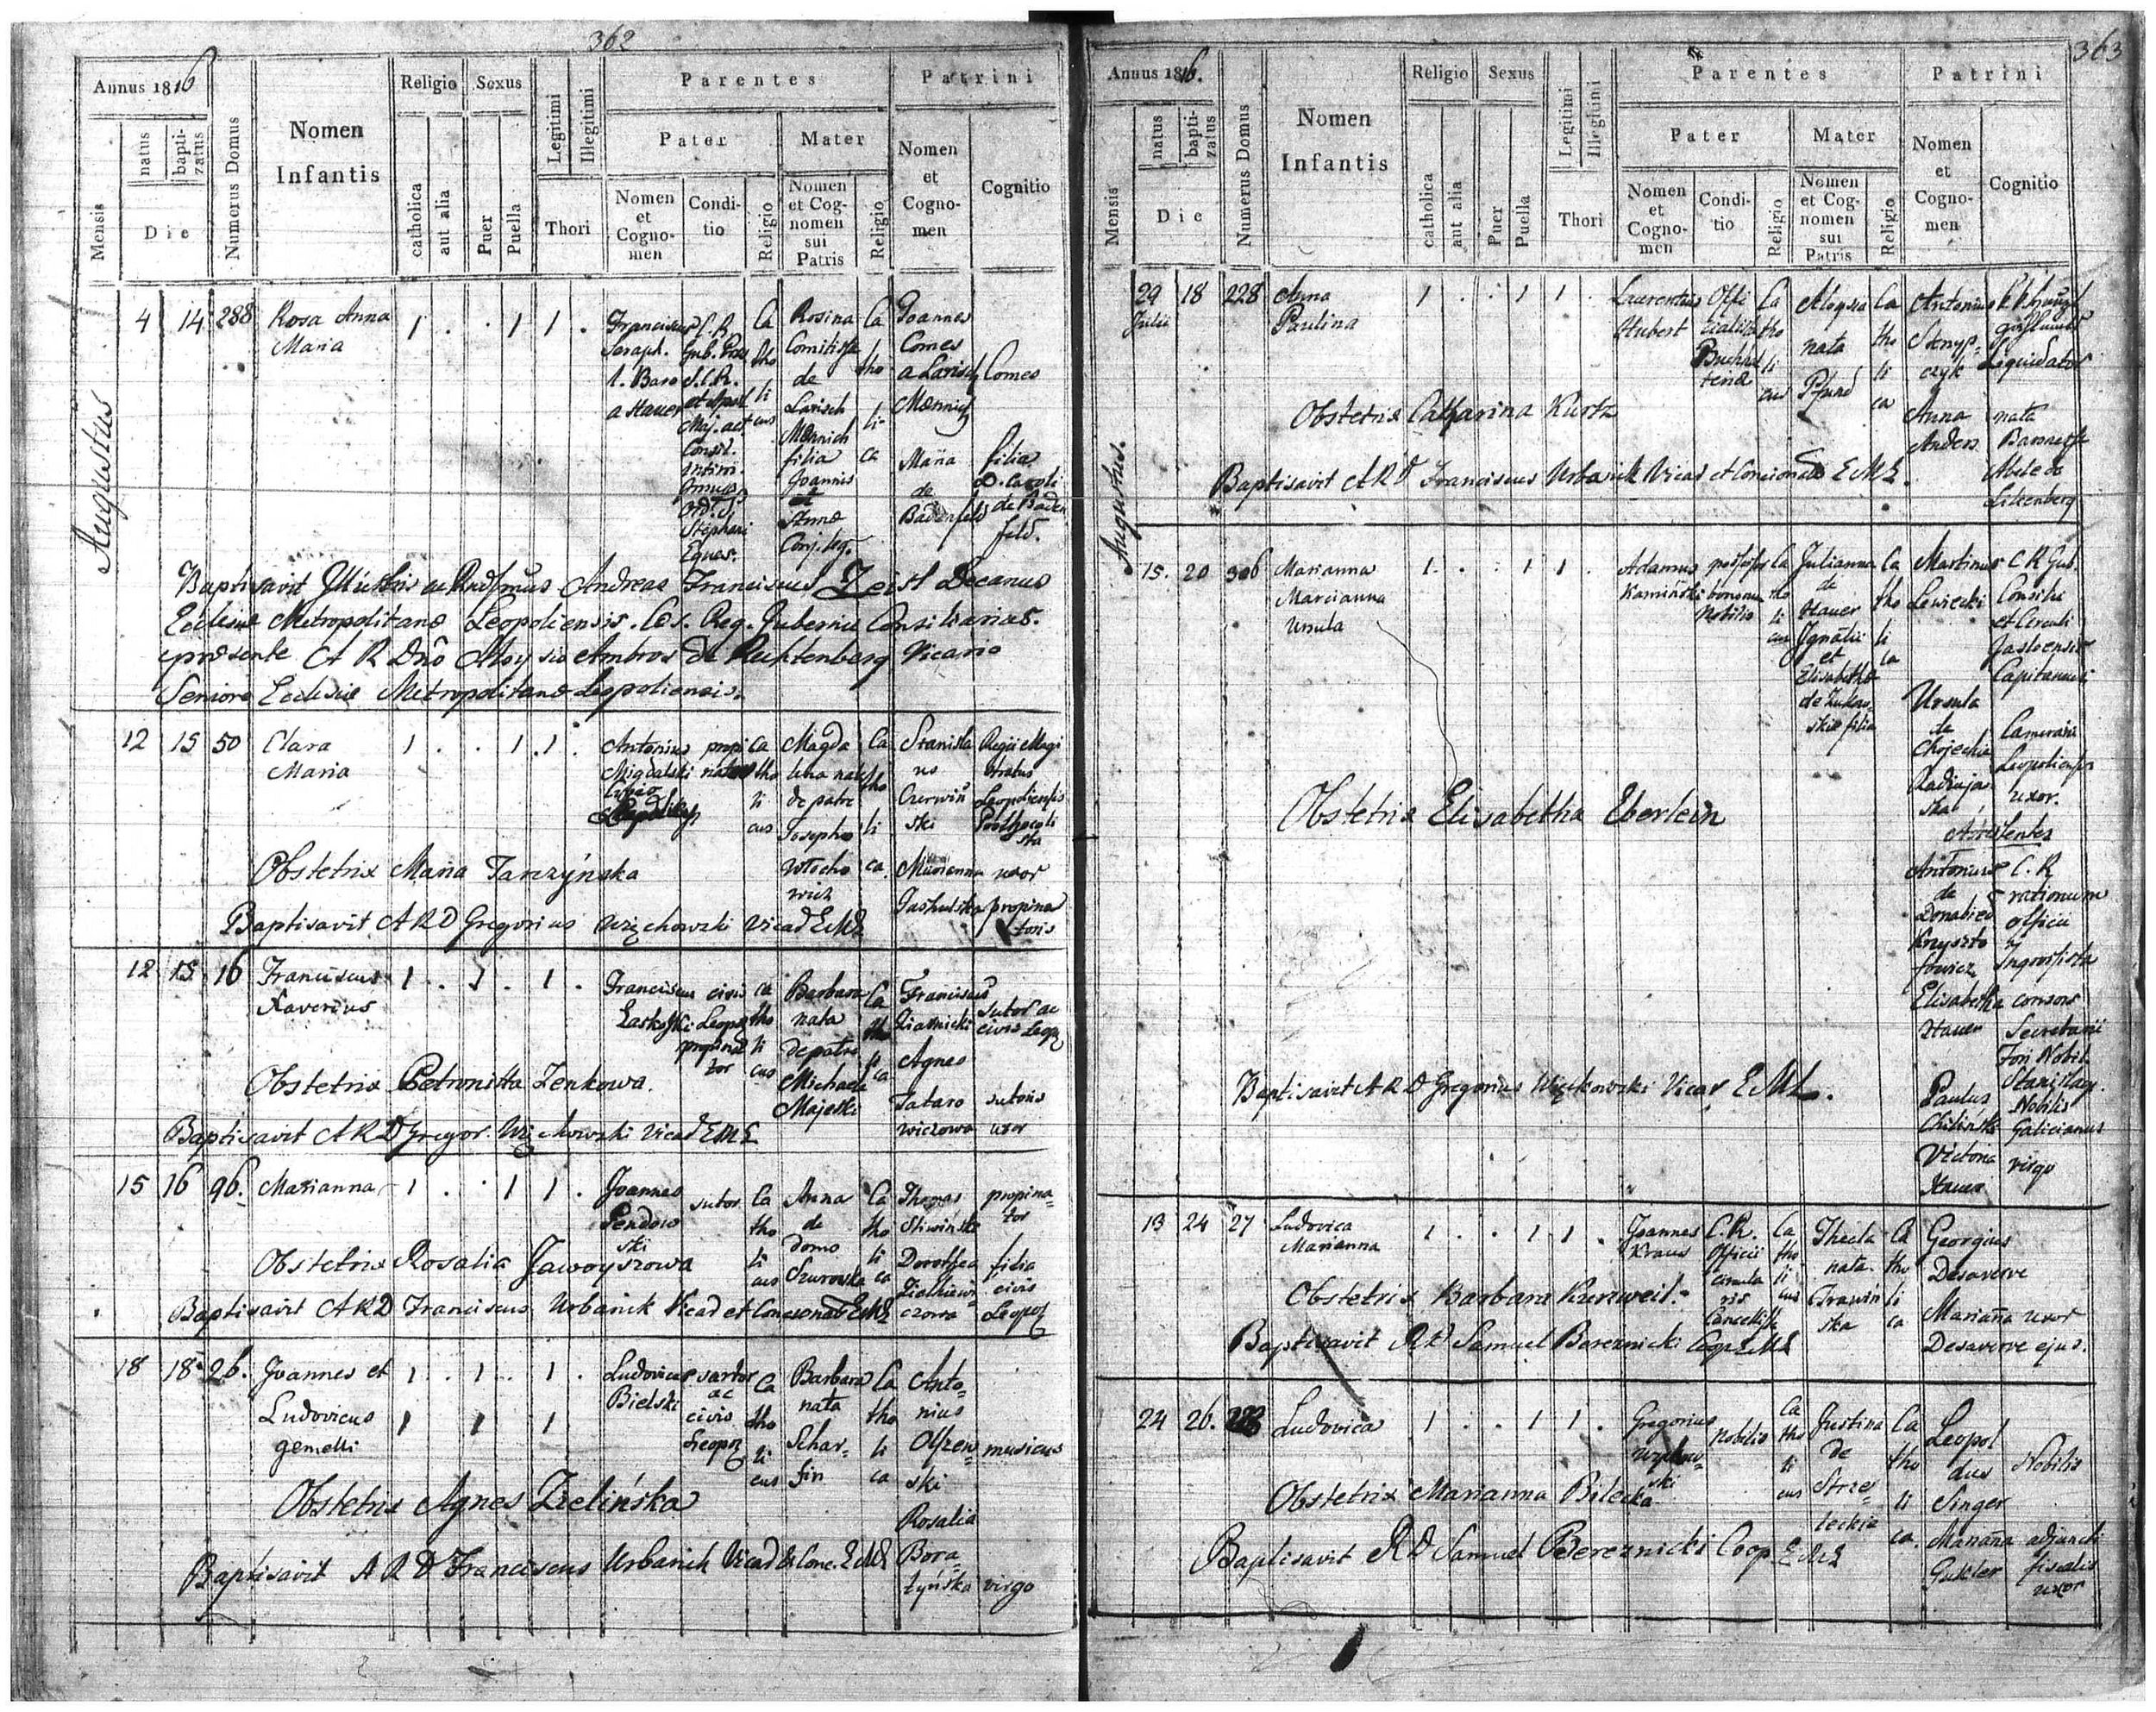 362
Annus 1816
Mensis
natus
bapti-
zatus
Die
Numerus Domus
Nomen
Infantis
Religio
catholica
aut alia
Sexus
Puer
Puella
Legitimi
Illegitimi
Thori
Parentes
Pater
Nomen
et
Cogno-
men
Condi-
tio
Religio
Mater
Nomen
et Cog-
nomen
sui
Patris
Religio
Patrini
Nomen
et
Cogno-
men
Cognitio
Augustus
4 14 288 Rosa Anna
Maria
1 . . 1 1 .
Franciscus
Seraph.
L. Baro
a Hauer
C. R.
Gub.
S. C. R.
et Apost
Maj. act
Consil.
intimi.
Ord. S.
Stephani
Eques.
Ca
tho
li
cus
Rosina
Comitissa
de
Larisch
Mönnich
filia
Joannis
et
Annæ
Conj. leg.
Ca
tho
li-
ca
Joannes
Comes
a Larisch
Mönnich
Comes
Maria
de
Badenfeld
filia
D. Caroli
de Baden
feld.
Baptisavit Andreas Franciscus Zeisl Decanus
Ecclesiæ Metropolitanæ Leopoliensis. Cæs. Reg. Gubernii Consiliarius.
præsente A R Dno Aloysio Ambros de Rechtenberg Vicario
Seniore Ecclesiæ Metropolitanæ Leopoliensis.
12 15 50 Clara
Maria
1 . . 1 1 .
Antonius
Migdalski
propi
nator
Ca
tho
li
cus
Magda
lena nata
de patre
Josepho
Włocho
wicz
Ca
tho
li
ca
Stanisla
us
Czerwiń
ski
Regii Magi
stratus
Leopoliensis
Marianna
Jashulska
uxor
propina
toris
Obstetrix Maria Tarczyńska
Baptisavit A R D Gregorius Więchowski Vicar E M L
12 15 16 Franciscus
Xaverius
1 . 1 . 1 .
Franciscus
civis
Leopol
propina
tor
ca
tho
li
cus
Barbara
nata
de patre
Michaele
Majeski
Ca
tho
li
ca
Franciscus
sutor ac
civis Leopol
Agnes
Tataro
wiczowa
sutoris
uxor
Obstetrix Petronilla Zenkowa.
Baptisavit A R D Gregor. Więchowski Vicar E M L
15 16 96. Marianna
1 . . 1 1 .
Joannes
Pendow
ski
sutor
Ca
tho
li
cus
Anna
de
domo
Szurowska
Ca
tho
li
ca
Thomas
Sliwiński
propina
tor
Dorothea
filia
civis
Leopol
Obstetrix Rosalia Jaworszowa
Baptisavit A R D Franciscus Urbanik Vicar et Concionator E M L
18 18 26. Joannes et
Ludovicus
gemelli
1 . 1 . 1 .
1 1 1
Ludovicus
Bielski
sartor
ac
civis
Leopol
Ca
tho
li
cus
Barbara
nata
Schar=
fin
Ca
tho
li
ca
Anto=
nius
Olszew=
ski
musicus
Rosalia
Bora=
tyńska
virgo
Obstetrix Agnes Zielińska
Baptisavit A R D Franciscus Urbanik Vicar & Conc. E M L
363
Annus 1816.
Mensis
natus
bapti-
zatus
Die
Numerus Domus
Nomen
Infantis
Religio
catholica
aut alia
Sexus
Puer
Puella
Legitimi
Illegitimi
Thori
Parentes
Pater
Nomen
et
Cogno-
men
Condi-
tio
Religio
Mater
Nomen
et Cog-
nomen
sui
Patris
Religio
Patrini
Nomen
et
Cogno-
men
Cognitio
Augustus.
29
Julii
18 228 Anna
Paulina
1 . . 1 1 .
Laurentius
Hubert
Offi
cialista
Buchhal
teriæ
Ca
tho
li
cus
Aloysia
nata
Pfund
Ca
tho
li
ca
Antonius
Skrzyp=
czyk
Liquidator
Anna
Anders
nata
Baronesse
Abele de
Lilienberg
Obstetrix Catharina Kurtz
Baptisavit A R D Franciscus Urbanik Vicar et Concionator E M L.
15. 20 306 Marianna
Marcianna
Ursula
1 . . 1 1 .
Adamus
Kamiński
possessor
bonorum
Nobilis
Ca
tho
li
cus
Julianna
de
Hauer
Ignatii
et
Elisabethæ
filia
Ca
tho
li
ca
Martinus
Lewiecki
C R Gub.
Consilii
et Circuli
Jasloensis
Capitaneus
Ursula
de
Chojecka
Radziejow
ska
Camerarii
Leopoliensis
uxor.
Assistentes
Antonius
de
Donabied
Krzyszto
fowicz
C. R
rationum
officii
Ingrossista
Elisabetha
Hauer
consors
Secretarii
Fori Nobil.
Stanislaop.
Paulus
Chiliński
Nobilis
Galicianus
Victoria
Hauer
virgo
Obstetrix Elisabetha Eberlein
Baptisavit A R D Gregorius Więckowski Vicar E M L.
13 24 27 Ludovica
Marianna
1 . . 1 1 .
Joannes
Kraus
C. R.
Officii
circula
ris
Cancellista
Ca
tho
li
cus
Thecla
nata
Trawiń
ska
Ca
tho
li
ca
Georgius
Desaverve
Mariana uxor
Desaverve ejus.
Obstetrix Barbara Kurzweil.
Baptisavit R D Samuel Bereznicki Coop E M L
24 26. Ludovica
1 . . 1 1 .
Gregorius
nobilis
Ca
tho
li
cus
Justina
de
Strze=
leckie
Ca
tho
li
ca.
Leopol
dus
Singer
Nobilis
Mariana
Gukler
adjuncti
fiscalis
uxor
Obstetrix Marianna Bilecka
Baptisavit R D Samuel Bereznicki Coop. E M L